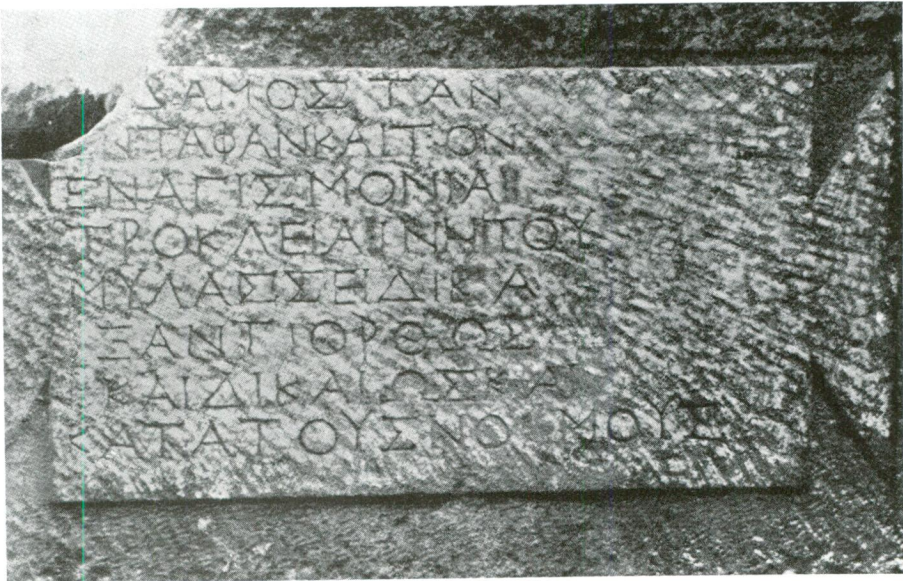 ΔΑΜΟΣ ΤΑΝ
ΝΤΑΦΑΝΚΑΙΤΟΝ
ΕΝΑΓΙΣΜΟΝΙΑ
ΤΡΟΚΛΕΙΑΙΝΗΤΟΥ
ΜΥΛΑΣΣΕΙΔΙΚΑ
ΞΑΝΤΙΟΡΘΩΣ
ΚΑΙΔΙΚΑΙΩΣΚΑ
ΚΑΤΑΤΟΥΣΝΟ ΜΟΥΣ